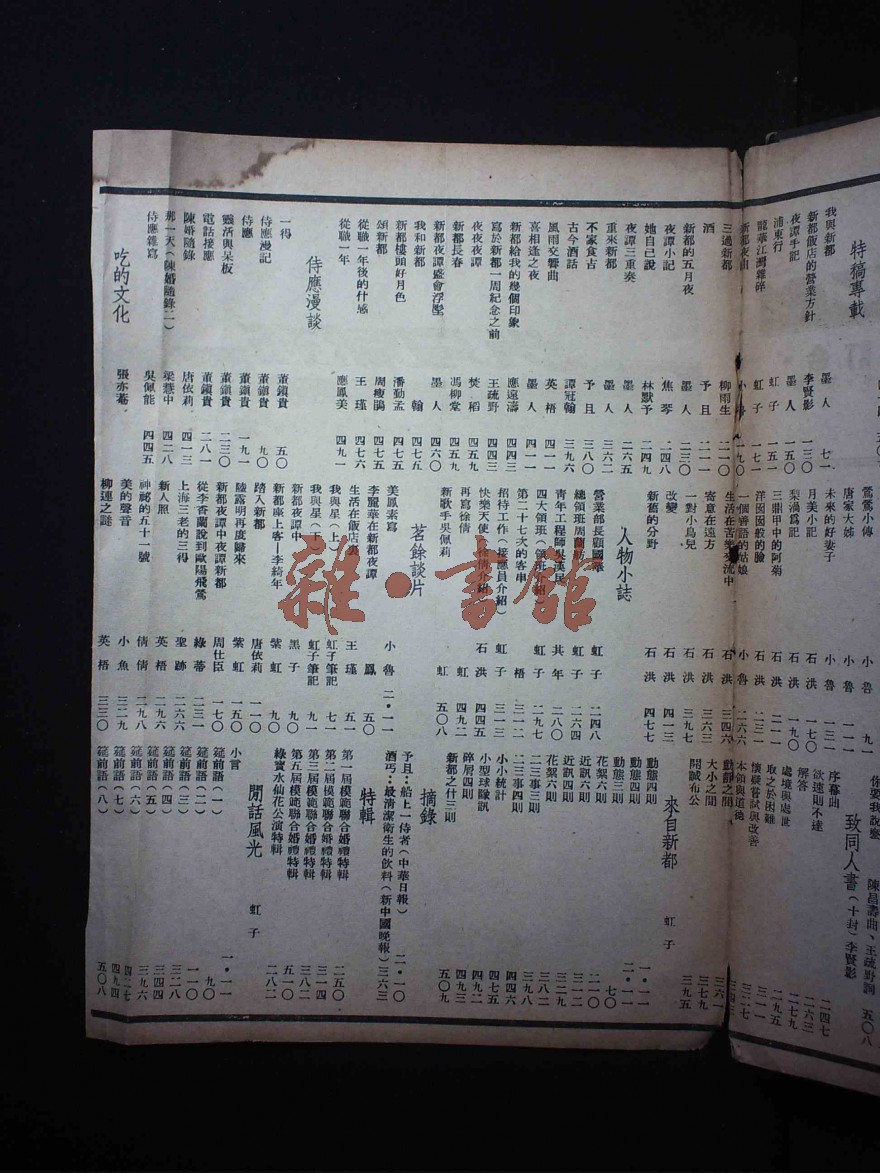 特稿專載
我與新都 墨人 七一
新都飯店的營業方針 李賢影 一三〇
夜譚手記 墨人 一五〇
浦東行 虹子 一五一
龍華江灣雜碎 虹子 一七一
新都夜曲 小魯 一九〇
三過新都 柳雨生 二一〇
酒 予且 二一一
新都的五月夜 墨人 二三〇
夜譚小記 焦琴
她自己說 林默予 二四九
夜譚三重奏 墨人 二六五
重來新都 墨人
不家食吉 予且 三八〇
古今酒話 譚冠翰 三九六
風雨交響曲 英梧 四一一
喜相逢之夜 墨人 四一一
新都給我的幾個印象 應遠濤 四四三
寫於新都一周紀念之前 王疏野 四四三
夜夜夜譚 焚稻 四五九
新都長春 馮柳堂 四五九
新都夜譚盛會浮塑 墨人 四六〇
我和新都 翰 四七五
新都樓頭好月色 潘勤孟 四七五
頌新都 周瘦鵑 四七五
從職一年後的什感 王瑾 四七六
從職一年 應鳳美 四九一
侍應漫談
一得 董鎮貴 五〇
侍應漫記 董鎮貴 九〇
侍應 董鎮貴 一九一
靈活與呆板 董鎮貴 二三〇
電話接應 董鎮貴 二八一
陳婚隨錄 唐依莉 四一三
那一天(陳婚隨錄二) 梁慧中 四二八
侍應雜寫 吳佩能 四四五
吃的文化 張亦菴
鶯鶯小傳 九一
唐家大姊 小魯 一一一
未來的好妻子 小魯 一三一
月美小記 石洪 一七〇
梨渦爲記 石洪 一九〇
三鼎甲中的阿菊 石洪 二一一
洋囡囡般的臉 石洪 二三一
一個善語的姑娘 小魯 二六六
生活在苦樂 流中 石洪 三四六
寄意在遠方 石洪 三六三
一對小鳥兒 石洪 三九七
改變 石洪 四一三
新舊的分野 石洪 四七七
人物小誌
營業部長顧國華 虹子 二四八
總領班周蘭舫 虹子 二六四
青年工程師吳漢民 其年 二八〇
四大領班(領班介紹) 虹子 二九七
第二十七次的客串 梧 三一三
招待工作(接應員介紹) 虹子 三一二
快樂天使(徐倩介紹) 石洪 四四五
再寫徐倩 石洪 四九二
新歌手吳佩莉 虹 五〇八
茗餘談片
美鳳素寫 小魯 二・一一
李麗華在新都夜譚 鳳 五〇
生活在飯店裏 王瑾 五一
我與星(上) 虹子筆記 七一
我與星(下) 虹子筆記 九一
新都夜譚中 黑子 九〇
新都座上客—李綺年 紫虹 九〇
踏入新都 唐依莉 一一〇
陸露明再度歸來 紫虹 一五〇
新都夜譚中夜譚新都 周仕臣 一七〇
從李香蘭說到歐陽飛鶯 綠蒂 二三一
上海三老的三得 聖跡 二六六
新人照 英梧 二九六
神祕的五十一號 倩倩 二九八
美的聲音 小魚 三二九
柳連之謎 英梧 三三〇
你要我說麼 陳昌壽曲、王疏野詞 五〇八
致同人書(十封)李賢影
序幕曲 二四七
欲速則不達 二六三
解答 二七九
處境與處世 二九五
取之於困難 三一一
懷疑嘗試與改善 三二七
本領與道德 三四三
動靜之間 三六一
大小之間 三七九
開誠布公 三九五
來自新都 虹子
動態四則 一・一一
動態四則 二・一一
動態三則 七〇
花絮六則 二一〇
近訊四則 三二九
近訊六則 三一二
花絮六則 三八二
二三事三則
二三事四則 三九八
小小統計 四四六
小型球隊訊 四七五
碎屑四則 四九二
新都之什三則 四九三
五〇九
摘錄
予且:船上一侍者(中華日報) 二・一〇
酒丐:最清潔衛生的飲料(新中國晚報) 三六三
特輯
第一屆模範聯合婚禮特輯 二五〇
第二屆模範聯合婚禮特輯 三一四
第三屆模範聯合婚禮特輯 三八二
第五屆模範聯合婚禮特輯 五一〇
綠寶水仙花公演特輯 二八二
閒話風光 虹子
小言 一・一一
筵前語(一) 九〇
筵前語(二) 一一〇
筵前語(三) 三二八
筵前語(四) 三九六
筵前語(五) 四二七
筵前語(六) 四九四
筵前語(七) 五〇八
筵前語(八)
雜・書館